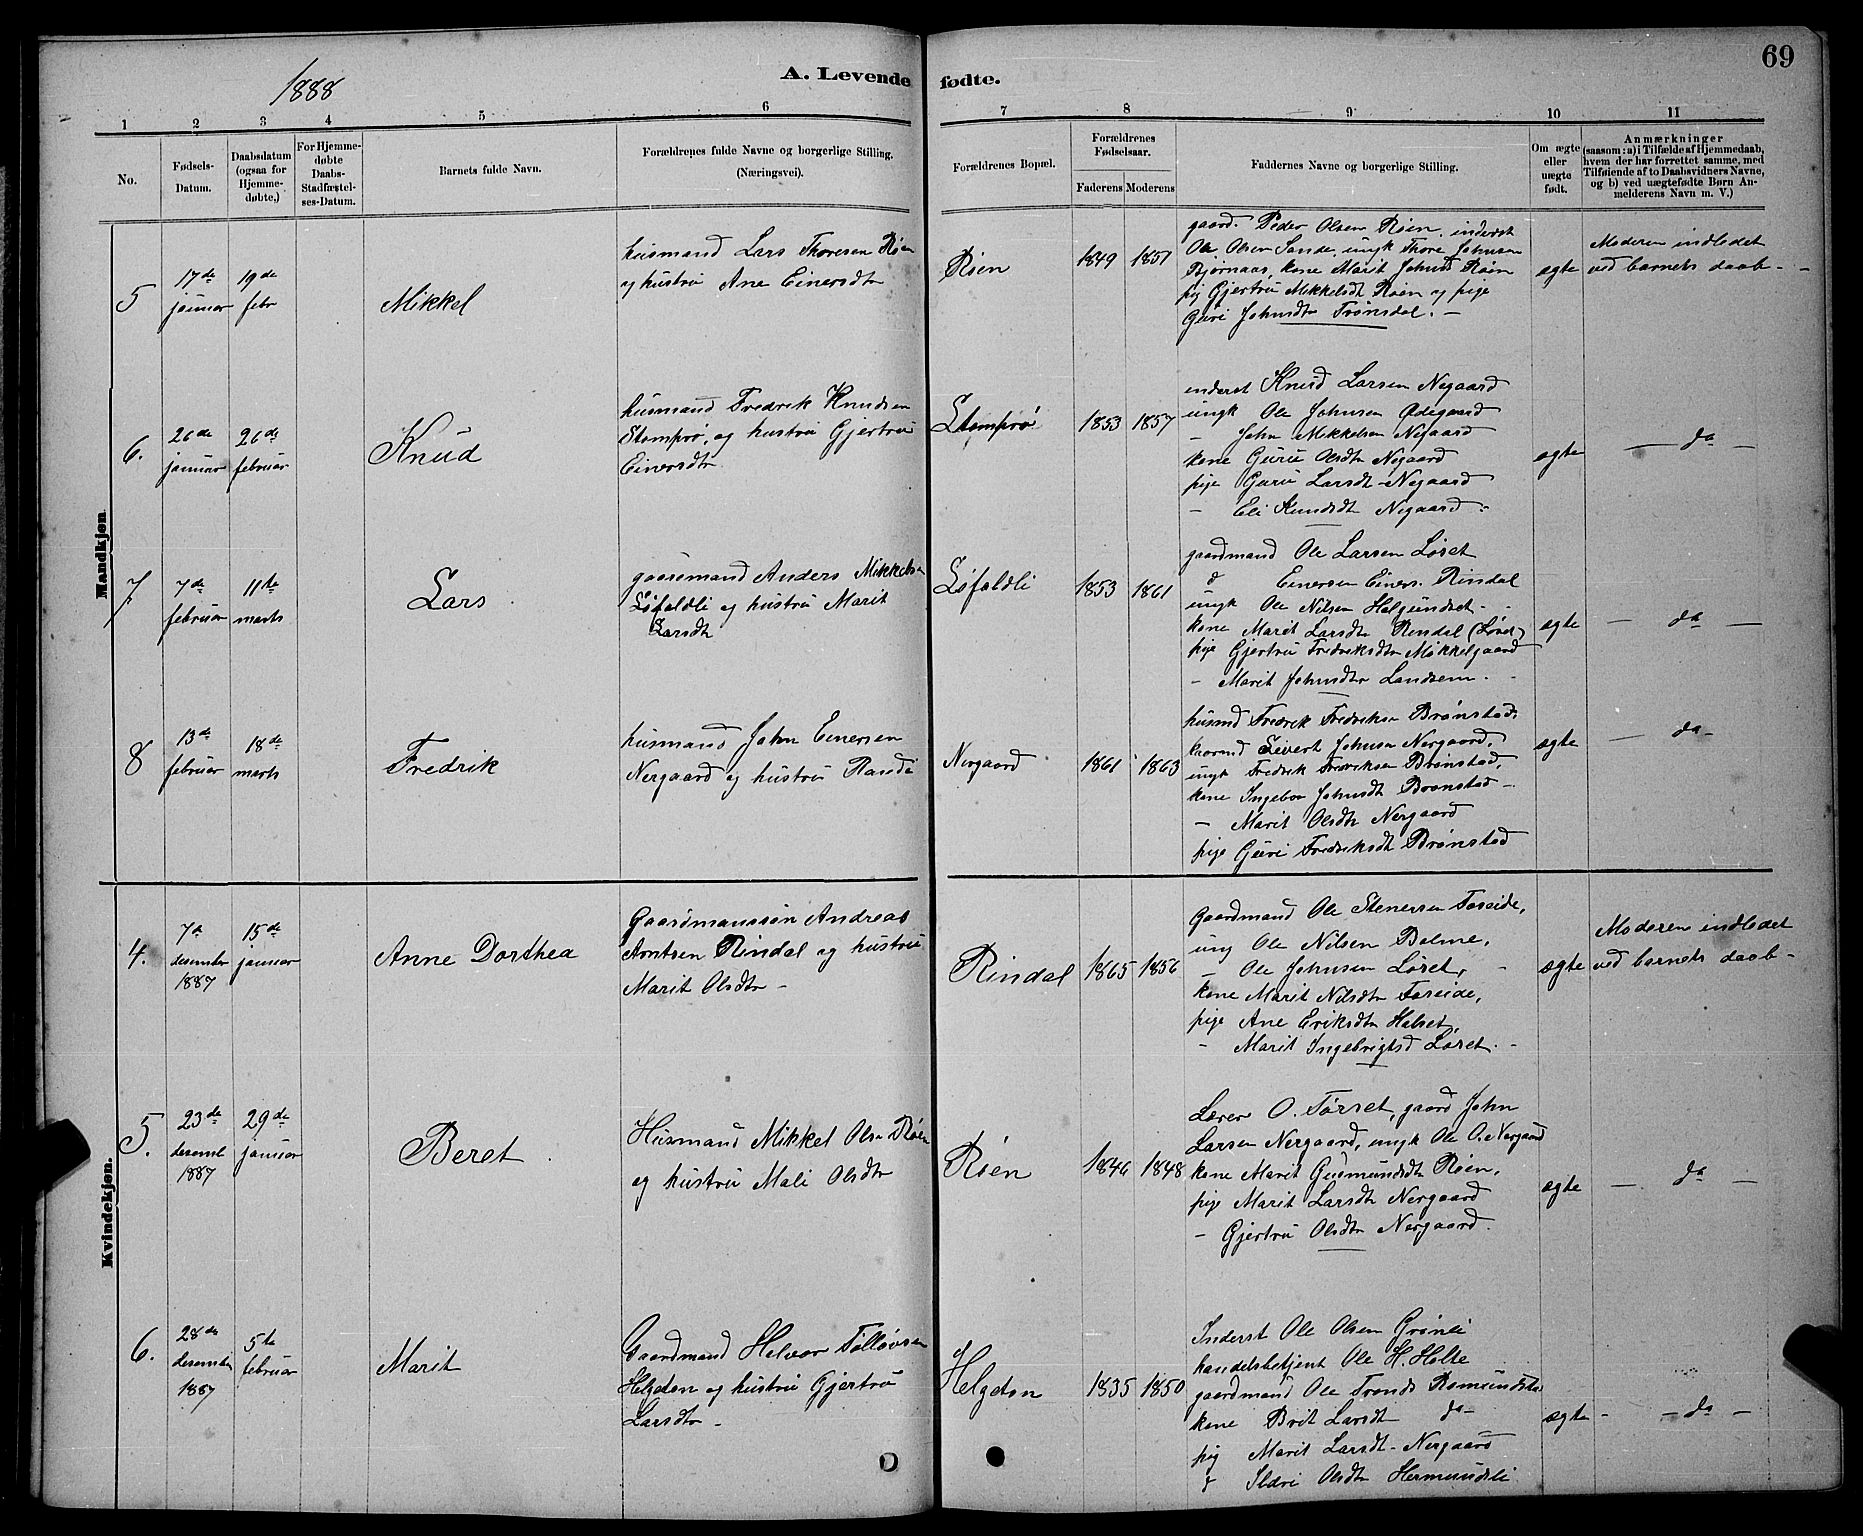 1888
A. Levende fødte.
69
1
2
3
4
5
6
7
8
9
10
11
No.
Fødsels-
Datum.
Daabsdatum
(ogsaa for
Hjemme-
døbte.)
For Hjemme-
døbte
Daabs-
Stadfæstel-
ses-Datum.
Barnets fulde Navn.
Forældrenes fulde Navne og borgerlige Stilling.
(Næringsvei).
Forældrenes Bopæl.
Forældrenes
Fødselsaar.
Faderens
Moderens
Faddernes Navne og borgerlige Stilling.
Om ægte
eller
uægte
født.
Anmærkninger
(saasom: a) i Tilfælde af Hjemmedaab,
hvem der har forrettet samme, med
Tilføiende af to Daabsvidners Navne,
og b) ved uægtefødte Børn An-
melderens Navn m. V.)
Mandkjøn
5
17de
januar
19de
febr
Mikkel
husmand Lars Thoresen Røen
og hustru Ane Einersdtr
Røen
1849
1851
gaard. Peder Olsen Røen, inderst
Ole Olsen Sande, ungk Thore Johnsen
Bjørnaas, kone Marit Johnsd Røen
pig Gjertru Mikkelsdt Røen og pige
Guri Johnsdtr Trønsdal. -
ægte
Moderen indledet
ved barnets daab -
6.
26de
januar
26de
februar
Knud
husmand Fredrik Knudsen
Stomprø, og hustru Gjertru
Einersdtr
Stomprø
1853
1857
inderst Knud Larsen Negaard
ungk Ole Johnsen Ødegaard
- John Mikkelsen Negaard
kone Guru Olsdt Negaard
pige Guru Larsdt Negaard
- Eli Knudsdt Negaard -
ægte
- da -
7
7de
februar
11te
marts
Lars
gaardmand Anders Mikkels
Løfaldli og hustru Marit
Larsdtr
Løfaldli
1853
1861
gaardmand Ole Larsen Løset
d Einersen Einers. Rindal
ungk Ole Nilsen Helgundset -
kone Marit Larsdtr Rindal (Løset)
pige Gjertru Fredriksdtr Mikkelgaard
- Marit Johnsdtr Landsem -
ægte
- da -
8
13de
februar
18de
marts
Fredrik
husmand John Einersen
Nergaard og hustru Randi
Nergaard
1861
1863
husmd Fredrik Fredriksen Brønstad
Sivert Johnsen Nergaard,
ungk Fredrik Fredriksen Brønstad,
kone Ingebor Johnsdt Brønstad -
- Marit Olsdtr Nergaard
pige Guri Fredriksdt Brønstad
ægte
- da -
Kvindekjøn.
4.
7de
desember
1887
15de
januar
Anne Dorthea
Gaardmandssøn Andreas
Arntsen Rindal og hustru
Marit Olsdtr -
Rindal
1865
1856
Gaardmand Ole Stenersen Foseide,
ung Ole Nilsen Bolme,
- Ole Johnsen Løset, -
kone Marit Nilsdtr Foseide,
pige Ane Eriksdtr Halset,
- Marit Ingebrigtsd Løset. -
ægte
Moderen indledet
ved barnets daab -
5.
23de
desemb
1887
29de
januar
Beret
Husmand Mikkel Olsn Røen
og hustru Mali Olsdtr
Røen
1846
1848
Lærer O. Tørset, gaard John
Larsen Nergaard, ungk Ole O. Nergaard
kone Marit Gudmundsdt Røen,
pige Marit Larsdtr Nergaard
- Gjertru Olsdtr Nergaard.
ægte
- da -
6.
28de
desember
1887
5te
februar
Marit
Gaardmand Helvor Tølløvsen
Helgeton og hustru Gjertru
Larsdtr -
Helgeton
1835
1850
Inderst Ole Olsen Grønli
handelsbetjent Ole H. Holte
gaardmand Ole Tronds Romundstad
kone Brit Larsdt da -
pig Marit Larsdt Nergaard
d Ildri Olsdtr Hermundsli
ægte -
- da -